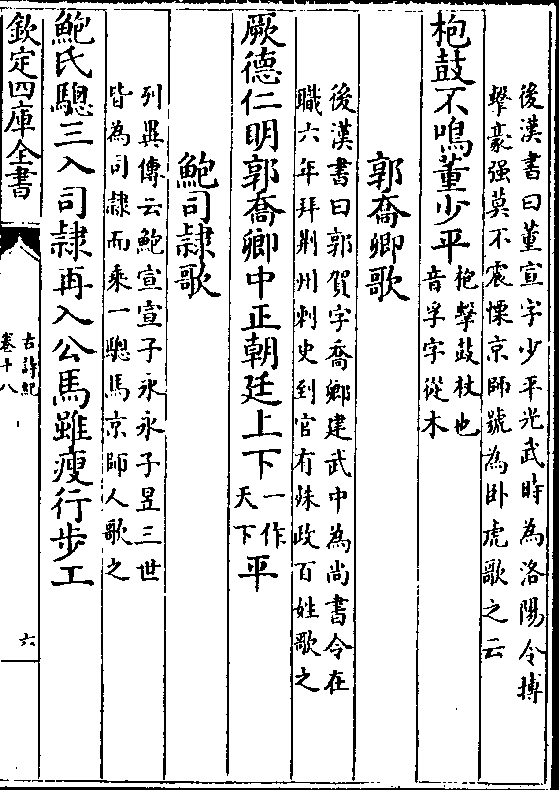 後漢書曰董宣字少平光武時為洛陽令搏
擊豪强莫不震慄京師號為卧虎歌之云
枹鼓不鳴董少平枹擊鼓杖也
音孚字從木
郭喬卿歌
後漢書曰郭賀字喬卿建武中為尚書令在
職六年拜荆州刺史到官有殊政百姓歌之
厥德仁明郭喬卿中正朝廷上下一作
天下平
鮑司隷歌
列異傳云鮑宣宣子永永子昱三世
皆為司隷而乘一驄馬京師人歌之
鮑氏驄三入司隷再入公馬雖瘦行步工
欽定四庫全書
古詩紀
卷十八
六